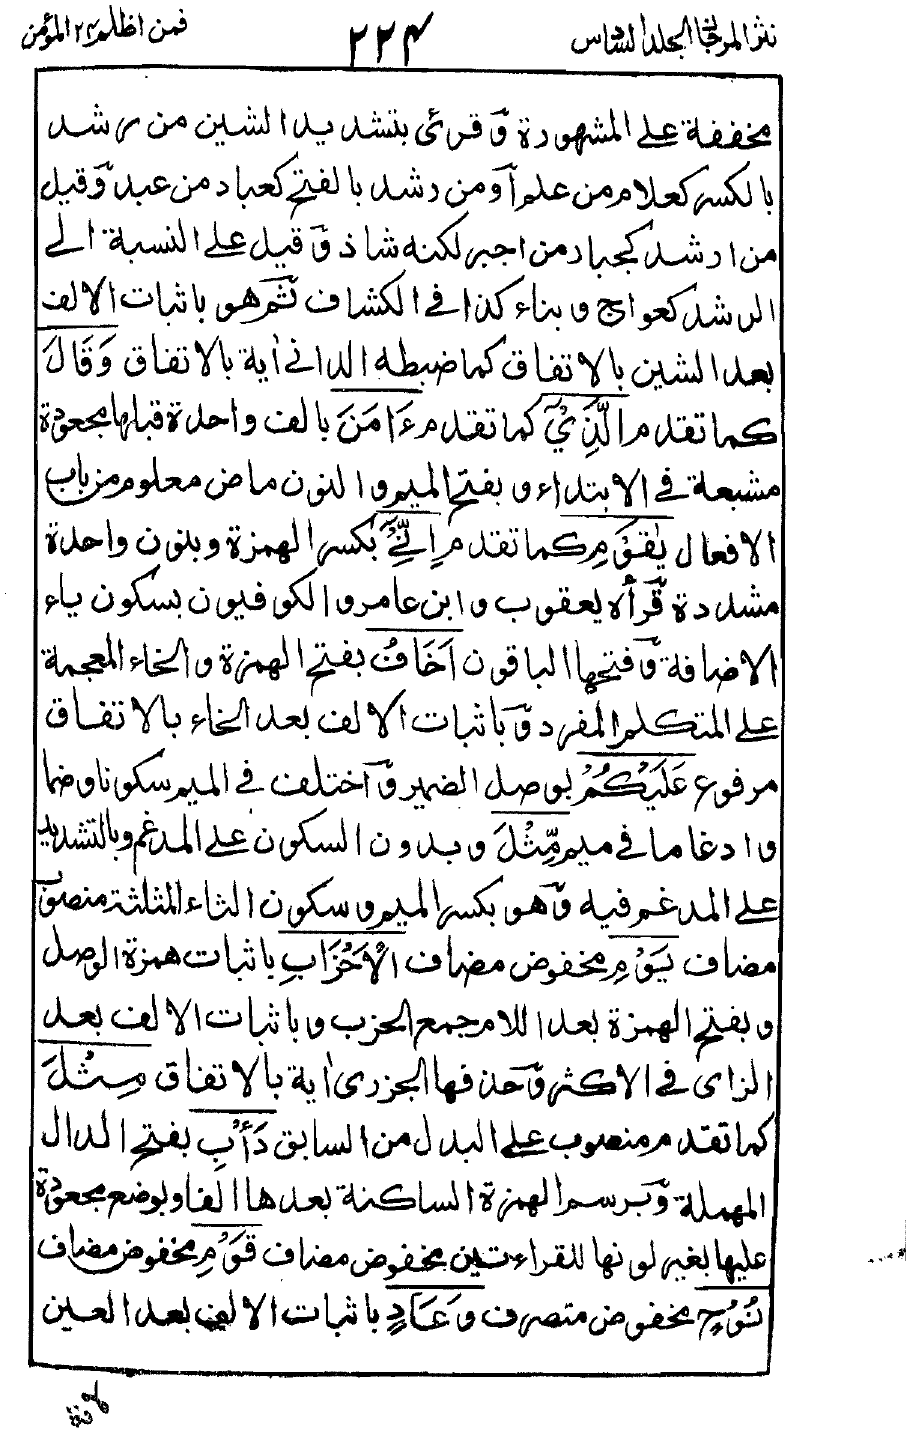 نثر المرجان الجلد السادس ٢٢٤ فمن اظلم ٢٤ المؤمن
مخففة على المشهورة وَقرئ بتشديد الشين من رشد
بالكسر كعلام من علم اَو من رشد بالفتح كعباد من عبد وَقيل
من ارشد كجباد من اجبر لكنه شاذ وَقيل على النسبة الى
الرشد كعواج و بتاء كذا فى الكشاف ثم هو باثبات الالف
بعد الشين بالاتفاق كما ضبطه الدانى اٰية بالاتفاق وَقَالَ
كما تقدم الَّذِيْٓ كما تقدم ءَامَنَ بالف واحدة قبلها مجعودة
مشبعة فى الابتداء و بفتح الميم والنون ماض معلوم من باب
الافعال يٰقَوْمِ كما تقدم اِنِّيْٓ بكسر الهمزة وبنون واحدة
مشددة قَرأه يعقوب وابن عامر والكوفيون بسكون ياء
الاضافة وَفتحها الباقون اَخَافُ بفتح الهمزة والخاء المعجمة
على المتكلم المفرد وَباثبات الالف بعد الخاء بالاتفاق
مرفوع عَلَيْكُمْ بوصل الضمير وَاختلف فى الميم سكونا وضما
وادغاما فى ميم مِّثْلَ وبدون السكون على المدغم وبالتشديد
على المدغم فيه وَهو بكسر الميم و سكون الثاء المثلثة منصوب
مضاف يَوْمِ مخفوض مضاف الْاَحْزَابِ باثبات همزة الوصل
وبفتح الهمزة بعد اللام جمع الحزب وباثبات الالف بعد
الزاى فى الاكثر وَحذفها الجزرى اٰية بالاتفاق مِثْلَ
كما تقدم منصوب على البدل من السابق دَأْبِ بفتح الدال
المهملة وَبرسم الهمزة الساكنة بعدها الفا وبوضع مجعودة
عليها بغير لونها للقراءتين مخفوض مضاف قَوْمِ مخفوض مضاف
نُوْحٍ مخفوض منصرف وَعَادٍ باثبات الالف بعد العين